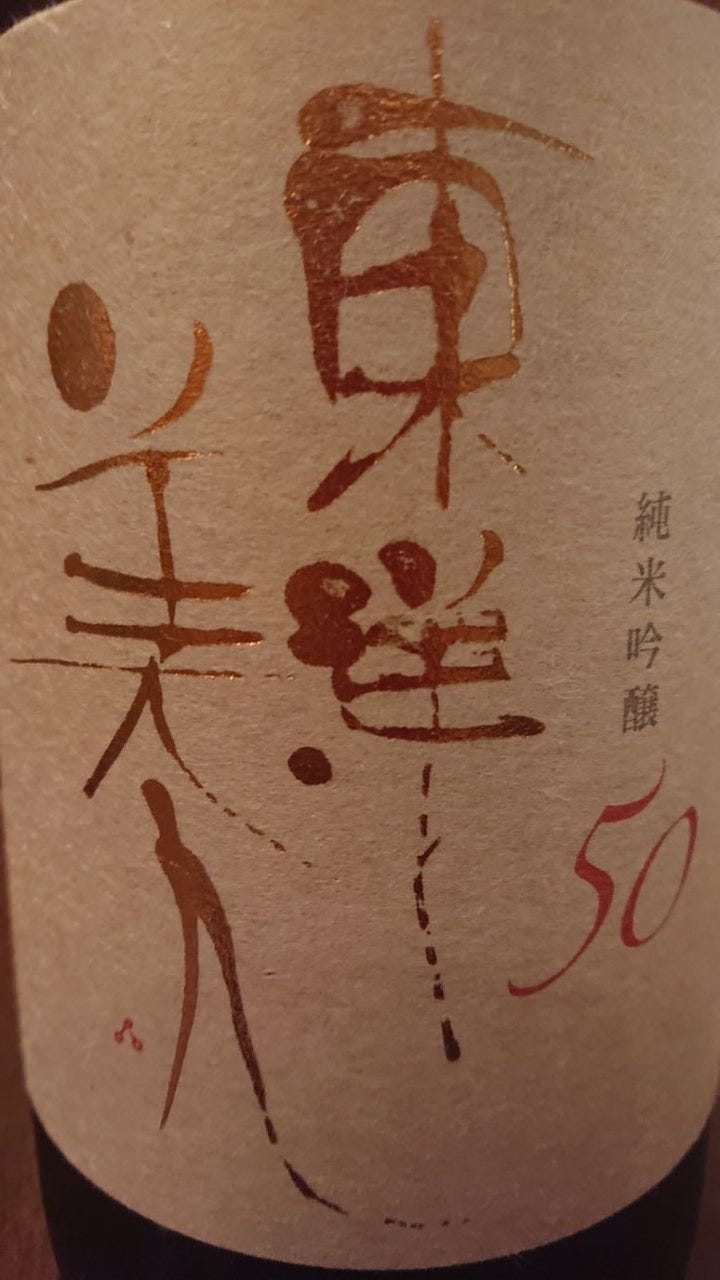 純米吟醸
50
東洋
美人